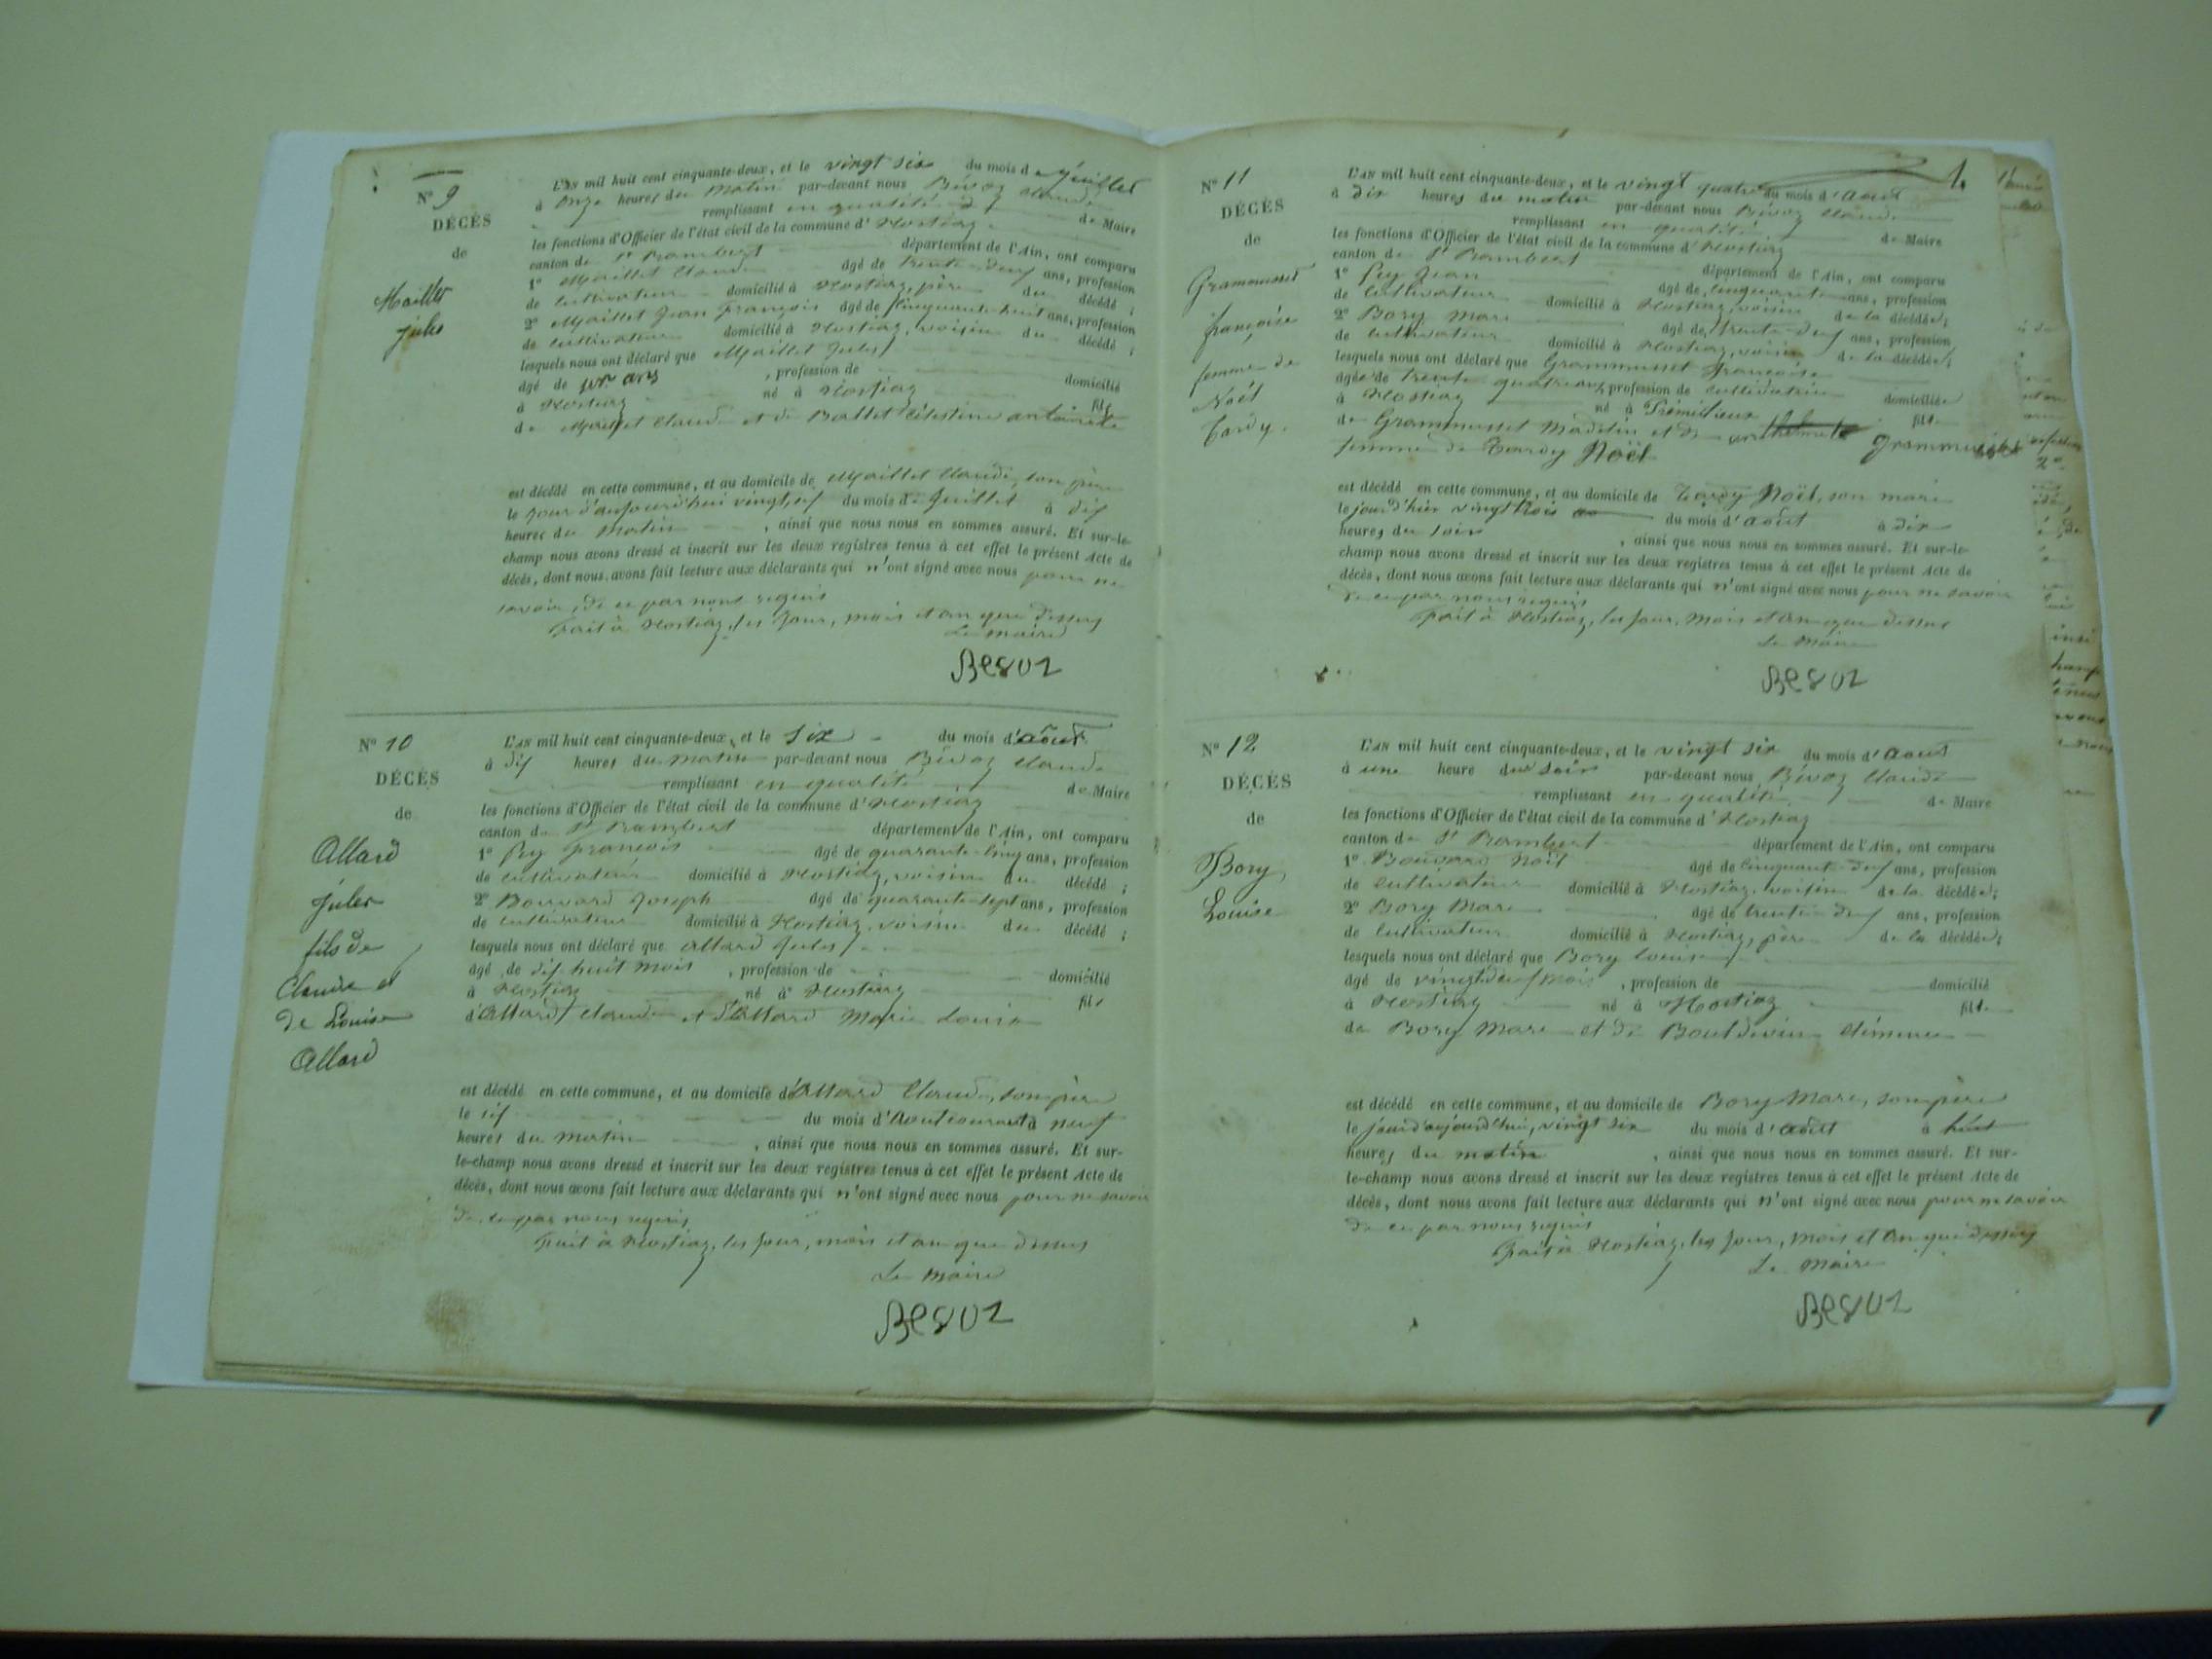 N° 9
DÉCÈS
de
Maillet
jules
L'AN mil huit cent cinquante-deux, et le vingt six du mois de juillet
à onze heures du matin par-devant nous Bévoz Claude
remplissant en qualité de Maire
les fonctions d'Officier de l'état civil de la commune d'Hostiaz
canton de St Rambert département de l'Ain, ont comparu
1° Maillet Claude âgé de trente-deux ans, profession
de cultivateur domicilié à Hostiaz, père du décédé ;
2° Maillet Jean François âgé de cinquante-huit ans, profession
de cultivateur domicilié à Hostiaz, voisin du décédé ;
lesquels nous ont déclaré que Maillet Jules
âgé de ans , profession de domicilié
à Hostiaz né à Hostiaz fils
de Maillet Claude et de Ballet Célestine antoinette
est décédé en cette commune, et au domicile de Maillet Claude, son père
le jour d'aujourd'hui vingt six du mois de Juillet à dix
heures du matin , ainsi que nous nous en sommes assuré. Et sur-le-
champ nous avons dressé et inscrit sur les deux registres tenus à cet effet le présent Acte de
décès, dont nous avons fait lecture aux déclarants qui n'ont signé avec nous pour ne
savoir, de ce par nous requis
Fait à Hostiaz, les jour, mois et an que dessus
Le maire
Bevoz
N° 10
DÉCÈS
de
Allard
jules
fils de
Claude et
de Louise
Allard
L'AN mil huit cent cinquante-deux, et le six du mois d'août
à dix heures du matin par-devant nous Bévoz Claude
remplissant en qualité de Maire
les fonctions d'Officier de l'état civil de la commune d'Hostiaz
canton de St Rambert département de l'Ain, ont comparu
1° Pey François âgé de quarante-cinq ans, profession
de cultivateur domicilié à Hostiaz, voisin du décédé ;
2° Bouvard Joseph âgé de quarante-sept ans, profession
de cultivateur domicilié à Hostiaz, voisin du décédé ;
lesquels nous ont déclaré que Allard Jules
âgé de dix huit mois , profession de domicilié
à Hostiaz né à Hostiaz fils
d'Allard Claude et d'Allard Marie Louise
est décédé en cette commune, et au domicile d'Allard Claude, son père
le six du mois d'Août courant à neuf
heures du matin , ainsi que nous nous en sommes assuré. Et sur-
le-champ nous avons dressé et inscrit sur les deux registres tenus à cet effet le présent Acte de
décès, dont nous avons fait lecture aux déclarants qui n'ont signé avec nous pour ne savoir
de ce par nous requis
Fait à Hostiaz, les jour, mois et an que dessus
Le maire
Bevoz
N° 11
DÉCÈS
de
Grammusset
françoise
femme de
Noël
Tardy.
L'AN mil huit cent cinquante-deux, et le vingt quatre du mois d'Août
à dix heures du matin par-devant nous Bévoz Claude
remplissant en qualité de Maire
les fonctions d'Officier de l'état civil de la commune d'Hostiaz
canton de St Rambert département de l'Ain, ont comparu
1° Pey Jean âgé de cinquante ans, profession
de cultivateur domicilié à Hostiaz, voisin de la décédée;
2° Bory Marc âgé de trente-deux ans, profession
de cultivateur domicilié à Hostiaz, voisin de la décédée;
lesquels nous ont déclaré que Grammusset Françoise
âgée de trente quatre ans, profession de cultivatrice domiciliée
à Hostiaz né à Prémillieux fille
de Grammusset Madelin et de Grammusset
femme de Tardy Noël
est décédé en cette commune, et au domicile de Tardy Noël, son mari
le jour d'hier vingt trois du mois d'août à dix
heures du soir , ainsi que nous nous en sommes assuré. Et sur-le-
champ nous avons dressé et inscrit sur les deux registres tenus à cet effet le présent Acte de
décès, dont nous avons fait lecture aux déclarants qui n'ont signé avec nous pour ne savoir
de ce par nous requis
Fait à Hostiaz, les jour, mois et an que dessus
Le Maire
Bevoz
N° 12
DÉCÈS
de
Bory
Louise
L'AN mil huit cent cinquante-deux, et le vingt six du mois d'Août
à une heure du soir par-devant nous Bévoz Claude
remplissant en qualité de Maire
les fonctions d'Officier de l'état civil de la commune d'Hostiaz
canton de St Rambert département de l'Ain, ont comparu
1° Bouvard Noël âgé de cinquante-deux ans, profession
de cultivateur domicilié à Hostiaz, voisin de la décédée;
2° Bory Marc âgé de trente-deux ans, profession
de cultivateur domicilié à Hostiaz, père de la décédée;
lesquels nous ont déclaré que Bory Louise
âgé de vingt-deux mois , profession de domicilié
à Hostiaz né à Hostiaz fille
de Bory Marc et de
est décédé en cette commune, et au domicile de Bory Marc, son père
le jour d'aujourd'hui, vingt six du mois d'août à huit
heures du matin , ainsi que nous nous en sommes assuré. Et sur-
le-champ nous avons dressé et inscrit sur les deux registres tenus à cet effet le présent Acte de
décès, dont nous avons fait lecture aux déclarants qui n'ont signé avec nous pour ne savoir
de ce par nous requis
Fait à Hostiaz, les jour, mois et an que dessus
Le Maire
Bevoz